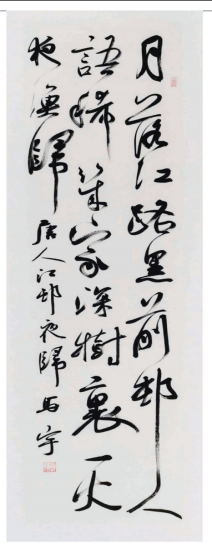 月落江路黑前邨人
語稀幾家深樹裏一火
夜漁歸
唐人江邨夜歸 马宇